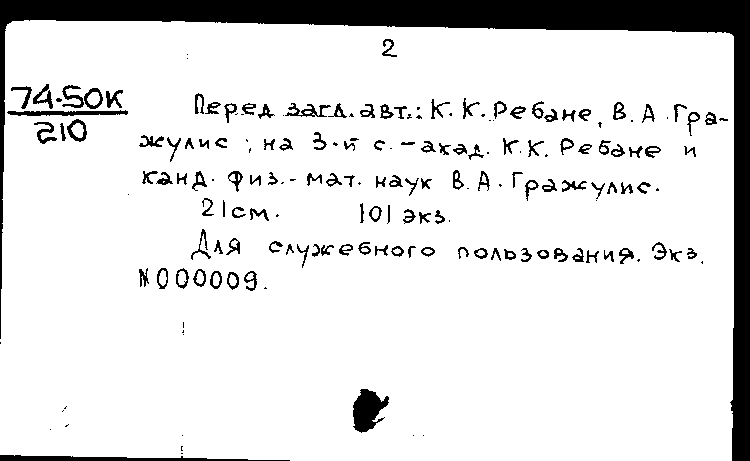 2
74-50К
210
Перед загл. авт.: К. К. Ребане, В. А. Гра-
жулис; на 3-й с. - акад. К. К. Ребане и
канд. физ.-мат. наук В. А. Гражулис.
21 см. 101 экз.
Для служебного пользования. Экз.
№ 000009.